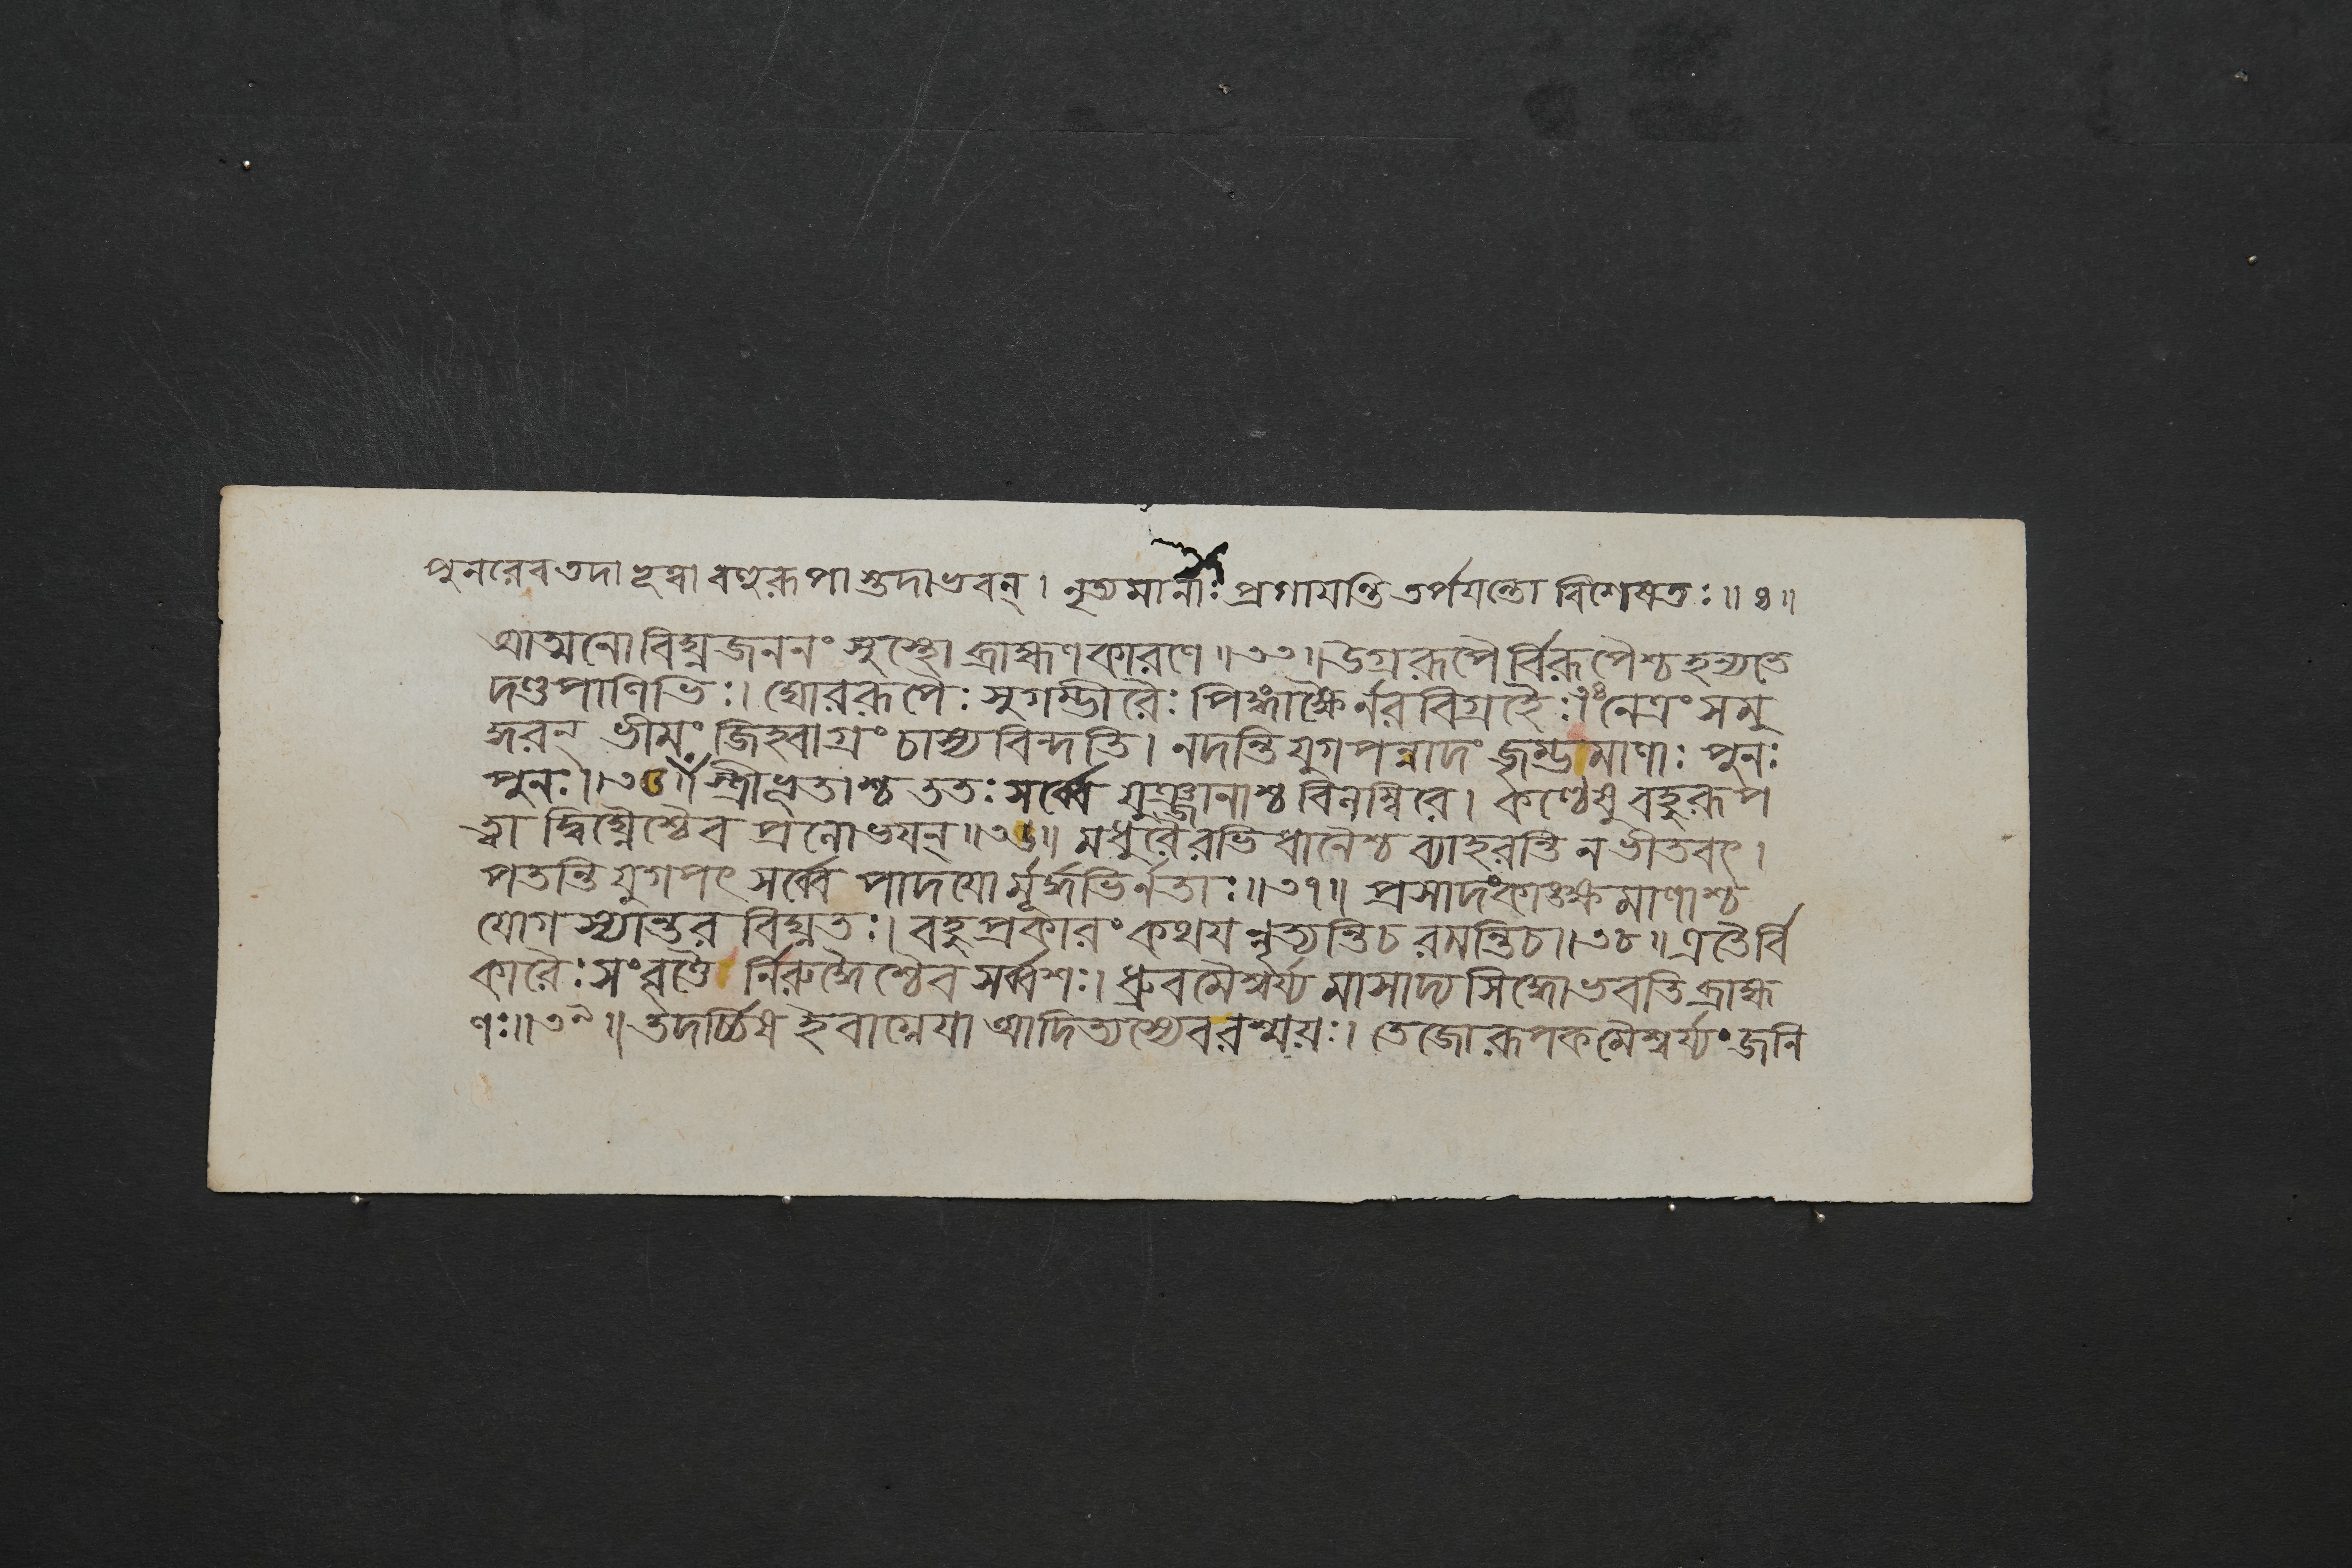 পুনরেব তদা হূত্বা বহুরূপাশ্তদাভবন্ । নৃত্যমানাঃ প্রগায়ন্তি তর্পয়ন্তো বিশেষতঃ ॥ ৪ ॥
আত্মনো বিঘ্নজননং সুস্থো ব্রাহ্মণকারণে ॥ ৩৩ ॥ উগ্ররূপৈর্বিরূপৈশ্চ হন্যতে
দণ্ডপাণিভিঃ । ঘোররূপৈঃ সুগম্ভীরৈঃ পিঙ্গাক্ষৈর্নরবিগ্রহৈঃ । নেত্রং সমু
দ্ধরন্ ভীমং জিহ্বাগ্রং চাস্য বিন্দতি । নদন্তি যুগপন্নাদং জৃম্ভমাণাঃ পুনঃ
পুনঃ ॥ ৩৫ ॥ স্ত্রীভূতাশ্চ ততঃ সর্ব্বে যুঞ্জানাশ্চ বিনম্বিরে । কণ্ঠেষু বহুরূপ
ত্বা দ্বিঘ্নৈশ্চৈব প্রনোভয়ন্ ॥ ৩৬ ॥ মধুরৈরভিধানৈশ্চ ব্যাহরন্তি ন ভীতবৎ ।
পতন্তি যুগপৎ সর্ব্বে পাদয়ো র্মূর্দ্ধভির্নতাঃ ॥ ৩৭ ॥ প্রসাদং কাঙ্ক্ষমাণাশ্চ
যোগস্যান্তরবিঘ্নতঃ । বহুপ্রকারং কথয় ন্নৃত্যন্তি চ রমন্তি চ ॥ ৩৮ ॥ এতৈর্বি
কারৈঃ সংবৃতৈ র্নিরুদ্ধৈশ্চৈব সর্ব্বশঃ । ধ্রুবমৈশ্বর্য্য মাসাদ্য সিদ্ধো ভবতি ব্রাহ্ম
ণঃ ॥ ৩৯ ॥ তদর্চ্চিষ ইবাগ্নেয়া আদিত্যস্যেব রশ্ময়ঃ । তেজোরূপকমৈশ্বর্য্যং জনি